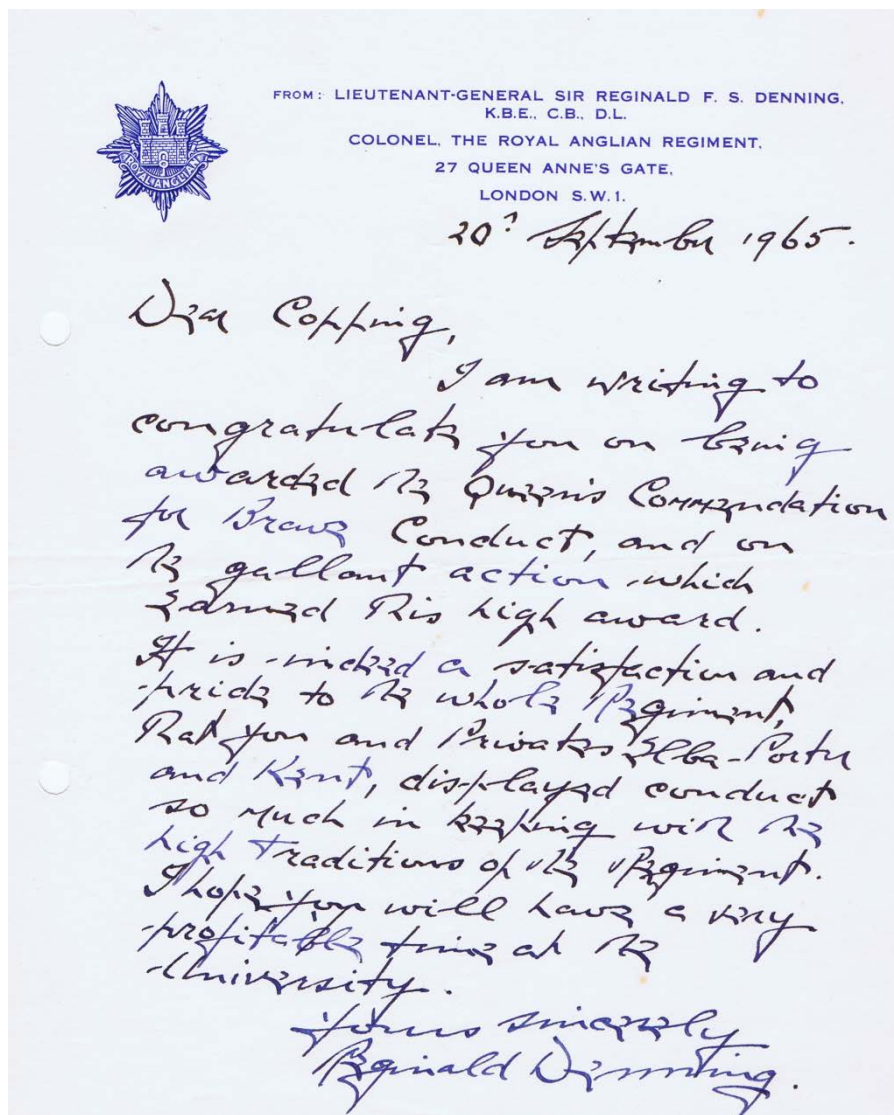 ROYAL ANGLIAN
FROM: LIEUTENANT-GENERAL SIR REGINALD F. S. DENNING,
K.B.E., C.B., D.L.
COLONEL, THE ROYAL ANGLIAN REGIMENT,
27 QUEEN ANNE'S GATE,
LONDON S.W.1.
20? September 1965.
Dear Copping,
I am writing to
congratulate you on being
awarded the Queen's Commendation
for Brave Conduct, and on
the gallant action which
earned this high award.
It is indeed a satisfaction and
pride to the whole Regiment,
that you and Privates Elba-Porter
and Kent, displayed conduct
so much in keeping with the
high traditions of the Regiment.
I hope you will have a very
profitable time at the
University.
Yours sincerely
Reginald Denning.